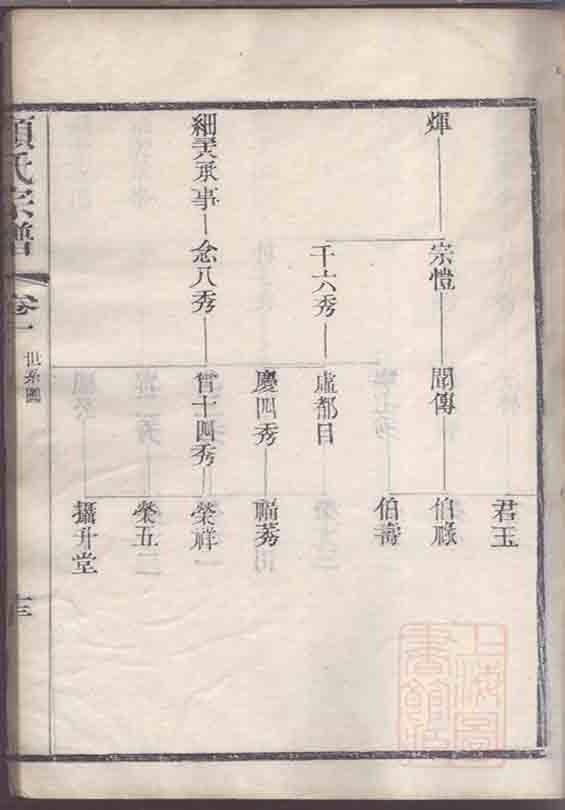 君玉
煇
宗愷
聞傳
伯祿
伯壽
千六秀
盧都目
慶四秀
福秀
承事
念八秀
曾十四秀
榮祥
榮五
攝升堂
項氏宗譜
卷一
世系圖
十三
上海圖書館藏